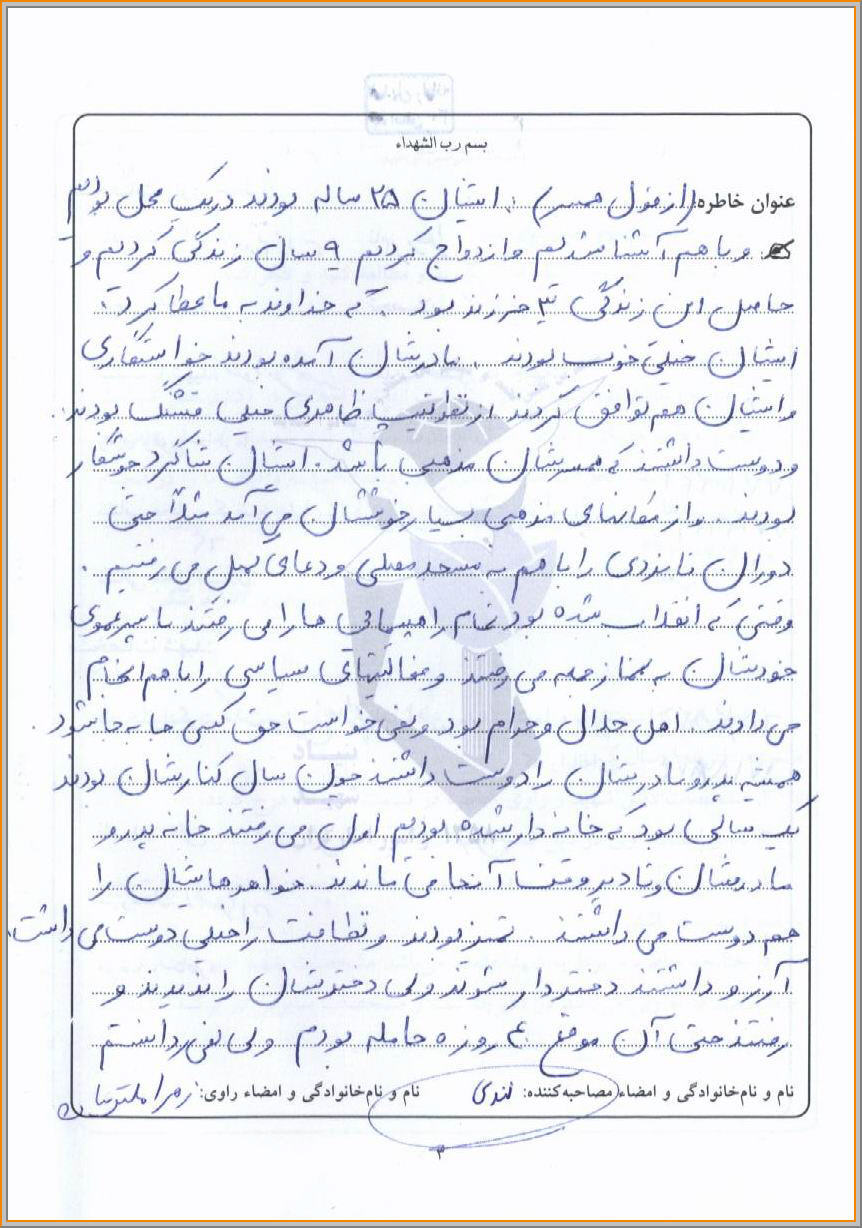 بسم رب الشهداء
عنوان خاطره: (از قول همسر) ایشان ۲۵ ساله بودند در یک محل بودیم
و با هم آشنا شدیم و ازدواج کردیم ۹ سال زندگی کردیم و
حاصل این زندگی ۳ فرزند بود. که خداوند به ما عطا کرد.
ایشان خیلی خوب بودند. مادرشان آمده بودند خواستگاری
و ایشان هم توافق کردند از نظر تیپ ظاهری خیلی قشنگ بودند.
و دوست داشتند که همسرشان مذهبی باشد. ایشان شاگرد جوشکار
بودند. و از مکانهای مذهبی بسیار خوششان می آمد مثلاً حتی
دوران نامزدی را با هم به مسجد مصلی و دعای کمیل می رفتیم.
وقتی که انقلاب شده بود تمام راهپیمائی ها را می رفتند با پسرعموی
خودشان به نماز جمعه می رفتند و فعالیتهای سیاسی را با هم انجام
می دادند. اهل حلال و حرام بود و نمی خواست حق کسی جابه جا شود.
همیشه پدر و مادرشان را دوست داشتند چون سال کنارشان بودند
یک سالی بود که خانه دار شده بودیم اول می رفتند خانه پدر و
مادرشان و تا دیر وقت آنجا می ماندند. خواهرهایشان را
هم دوست می داشتند. تمیز بودند و نظافت را خیلی دوست می داشت.
آرزو داشتند دختر دار شوند ولی دخترشان را ندیدند و
رفتند حتی آن موقع ۴۰ روزه حامله بودم ولی نمی دانستم
نام و نام‌خانوادگی و امضاء مصاحبه‌کننده: نام و نام‌خانوادگی و امضاء راوی: زهرا
۳